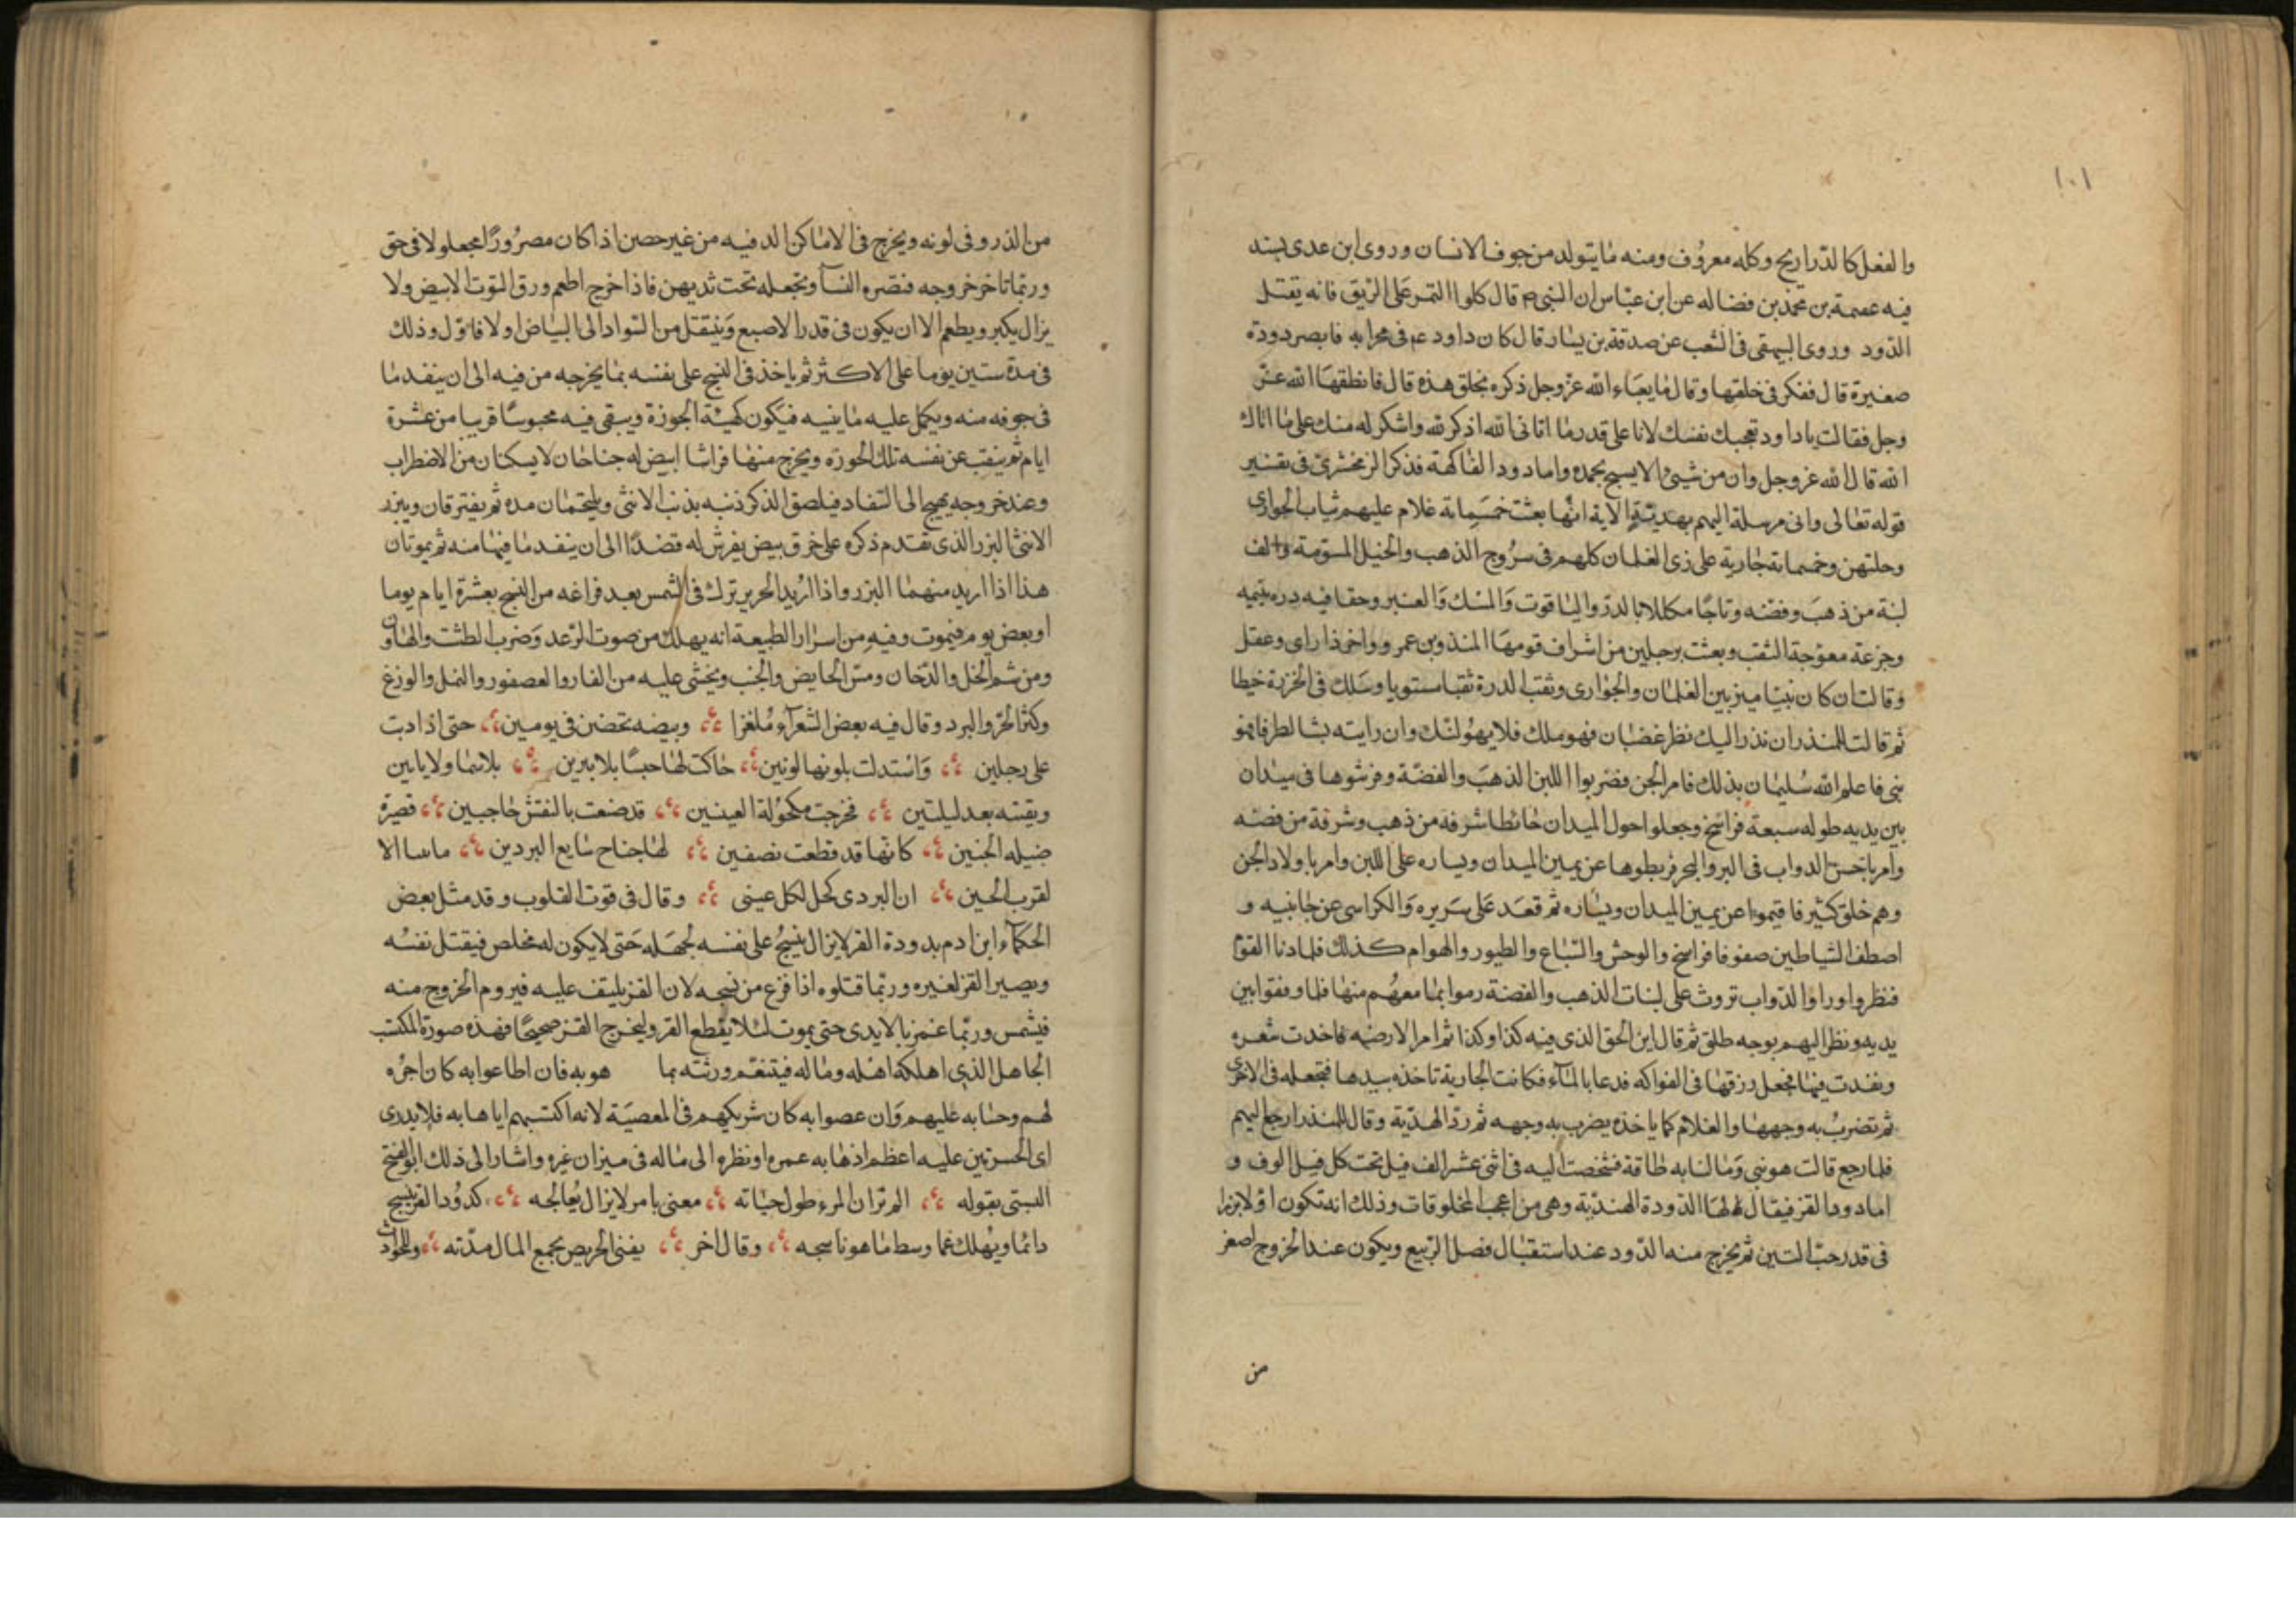 ١٠١
والفعل كالذراريح وكله معروف ومنه ما يتولد من جوف الانسان وروى ابن عدى بسند
فيه عصمة بن محمد بن فضاله عن ابن عباس ان النبى ص قال كلوا التمر على الريق فانه يقتل
الدود وروى البيهقى فى الشعب عن صدقة بن يسار قال كان داود عم فى محرابه فابصر دودة
صغيرة قال ففكر فى خلقها وقال ما يعباء الله عز وجل ذكره بخلق هذه قال فانطقها الله عز
وجل فقالت يا داود تعجبك نفسك لانا على قدر ما اتانى الله اذكر لله واشكر له منك على ما اتاك
الله قال الله عز وجل وان من شيئ الا يسبح بحمده واما دود الفاكهة فذكر الزمخشرى فى تفسير
قوله تعالى وانى مرسلة اليهم بهدية الاية انها بعثت خمسمائة غلام عليهم ثياب الجوارى
وحليهن وخمسمائة جارية على ذى الغلمان كلهم فى سروج الذهب والخيل المسومة والف
لبنة من ذهب وفضه وتاجا مكللا بالدر والياقوت والمسك والعنبر وحقا فيه دره يتيمه
وجزعة معوجة الثقب وبعثت برجلين من اشراف قومها المنذر بن عمرو واخر ذا راى وعقل
وقالت ان كان نبيا ميز بين الغلمان والجوارى وثقب الدرة ثقبا مستويا وسلك فى الخرزة خيطا
ثم قالت للمنذر ان نذر اليك نظر غضبان فهو ملك فلا يهولنك وان رايته بشا لطرفا فهو
نبى فاعلم الله سليمان بذلك فامر الجن فضربوا اللبن الذهب والفضة وفرشوها فى ميدان
بين يديه طوله سبعة فراسخ وجعلوا حول الميدان حائطا شرفه من ذهب وشرفة من فضه
وامر باحسن الدواب فى البر والبحر فربطوها عن يمين الميدان ويساره على اللبن وامر باولاد الجن
وهم خلق كثير فاقيموا عن يمين الميدان ويساره ثم قعد على سريره والكراسى عن جانبيه و
اصطف الشياطين صفوفا فراسخ والوحش والسباع والطيور والهوام كذلك فلما دنا القوم
فنظروا وراوا الدواب تروث على لبنات الذهب والفضة رموا بما معهم منها فلما وقفوا بين
يديه ونظر اليهم بوجه طلق ثم قال اين الحق الذى فيه كذا وكذا ثم امر الارضه فاخذت شعره
ونفدت فيها فجعل رزقها فى الفواكه فدعا بالماء فكانت الجارية تاخذه بيدها فتجعله فى الاخرى
ثم تضرب به وجهها والغلام كما ياخذه يضرب به وجهه ثم رد الهدية وقال للمنذر ارجع اليهم
فلما رجع قالت هو نبى وما لنا به طاقة فشخصت اليه فى اثنى عشر الف فيل تحت كل فيل الوف و
اما دود القز فيقال لها الدودة الهندية وهى من اعجب المخلوقات وذلك انه تكون اولا بزرا
فى قدر حب التين ثم يخرج منه الدود عند استقبال فصل الربيع ويكون عند الخروج اصغر
من
من الذر وفى لونه ويخرج فى الاماكن الدفيه من غير حصن اذا كان مصرورا مجعولا فى حق
وربما تاخر خروجه فتصره النساء وتجعله تحت ثديهن فاذا خرج اطعم ورق التوت الابيض ولا
يزال يكبر ويطعم الا ان يكون فى قدر الاصبع وينتقل من السواد الى البياض اولا فاول وذلك
فى مدة ستين يوما على الاكثر ثم ياخذ فى النسج على نفسه بما يخرجه من فيه الى ان ينفد ما
فى جوفه منه ويكمل عليه ما يبنيه فيكون كهيئة الجوزة ويبقى فيه محبوسا قريبا من عشرة
ايام ثم ينقب عن نفسه تلك الجوزه ويخرج منها فراشا ابيض له جناحان لا يسكنان من الاضطراب
وعند خروجه يهيج الى السفاد فيلصق الذكر ذنبه بذنب الانثى ويلتحمان مده ثم يفترقان ويبزر
الانثى البزر الذى تقدم ذكره على خرق بيض يفرش له قصدا الى ان ينفد ما فيها منه ثم يموتان
هذا اذا اريد منهما البزر واذا اريد الحرير ترك فى الشمس بعد فراغه من النسج بعشرة ايام يوما
او بعض يوم فيموت وفيه من اسرار الطبيعة انه يهلك من صوت الرعد وضرب الطشت والهاون
ومن شم الخل والدخان ومس الحايض والجنب ويخشى عليه من الفار والعصفور والنمل والوزغ
وكثر الحر والبرد وقال فيه بعض الشعراء ملغزا وبيضه تحضن فى يومين حتى اذا دبت
على رجلين واستدلت بلونها لونين حاكت لها حبسا بلا بيرين بلا سما ولا يابين
وبقبته بعد ليلتين فخرجت مكحولة العينين قد صنعت بالنقش حاجبين قصيرة
ضيله الجنين كانها قد قطعت نصفين لها جناح سايع البردين ماسا الا
لقرب الحين ان البردى كحل لكل عينى وقال فى قوت القلوب وقد مثل بعض
الحكماء ابن ادم بدودة القز لا يزال ينسج على نفسه لجهله حتى لا يكون له مخلص فيقتل نفسه
ويصير القز لغيره وربما قتلوه اذا فزع من نسجه لان القز يليف عليه فيروم الخروج منه
فيشمس وربما غمز بالايدى حتى يموت لئلا يقطع القز وليخرج القز صحيحا فهذه صورة المكتسب
الجاهل الذى اهلكه اهله وماله فيتنعم ورثته بما هو به فان اطاعوا به كان اجره
لهم وحسابه عليهم وان عصوا به كان شريكهم فى المعصية لانه اكتسبهم اياها به فلا يدرى
اى الحسرتين عليه اعظم اذهابه عمره او نظره الى ماله فى ميزان غيره واشار الى ذلك ابو الفتح
البستى بقوله الم تر ان المرء طول حياته معنى بامر لا يزال يعالجه كدود القز ينسج
دائما ويهلك غما وسط ما هو ناسجه وقال اخر يفنى الحريص بجمع المال مدته وللحوادث